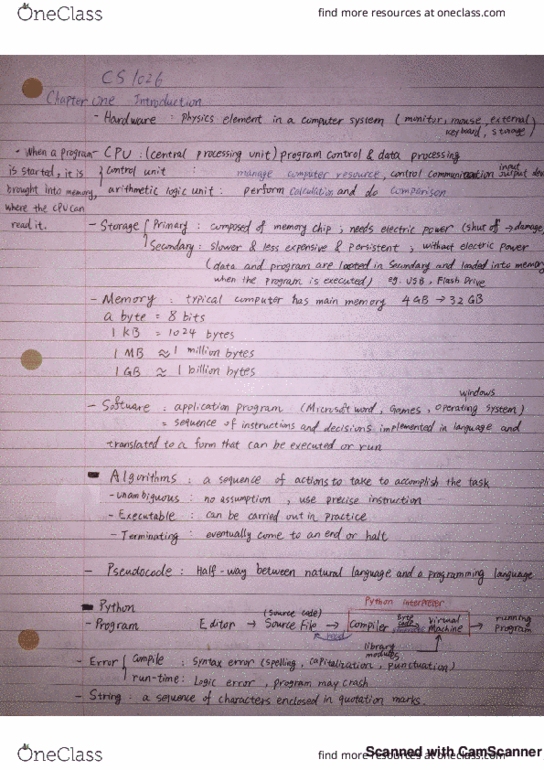 OneClass
find more resources at oneclass.com
CS 1026
Chapter one Introduction
- Hardware : physics element in a computer system (monitor, mouse, external
keyboard, storage)
- When a program is started, it is brought into memory, where the CPU can read it.
- CPU : (central processing unit) program control & data processing
control unit : manage computer resource, control communication input output
arithmetic logic unit : perform calculation and do comparison
- Storage Primary : composed of memory chip ; needs electric power (shut off → damage
Secondary : slower & less expensive & persistent ; without electric power
(data and program are located in Secondary and loaded into memory
when the program is executed) eg. USB, Flash Drive
- Memory : typical computer has main memory 4GB → 32 GB
a byte = 8 bits
1 KB = 1024 bytes
1 MB ≈ 1 million bytes
1 GB ≈ 1 billion bytes
windows
- Software : application program (Microsoft word, Games, operating system)
= sequence of instructions and decisions implemented in language and
translated to a form that can be executed or run
Algorithms : a sequence of actions to take to accomplish the task
- unambiguous : no assumption , use precise instruction
- Executable : can be carried out in practice
- Terminating : eventually come to an end or halt
- Pseudocode : Half-way between natural language and a programming language
Python
Python Interpreter
(source code)
- Program Editor → Source File → Compiler Byte code Virtual Machine → running program
read
library modules
- Error compile : Syntax error (spelling, capitalization, punctuation)
run-time : Logic error , program may crash
- String : a sequence of characters enclosed in quotation marks.
OneClass
find more resources at oneclass.com
Scanned with CamScanner